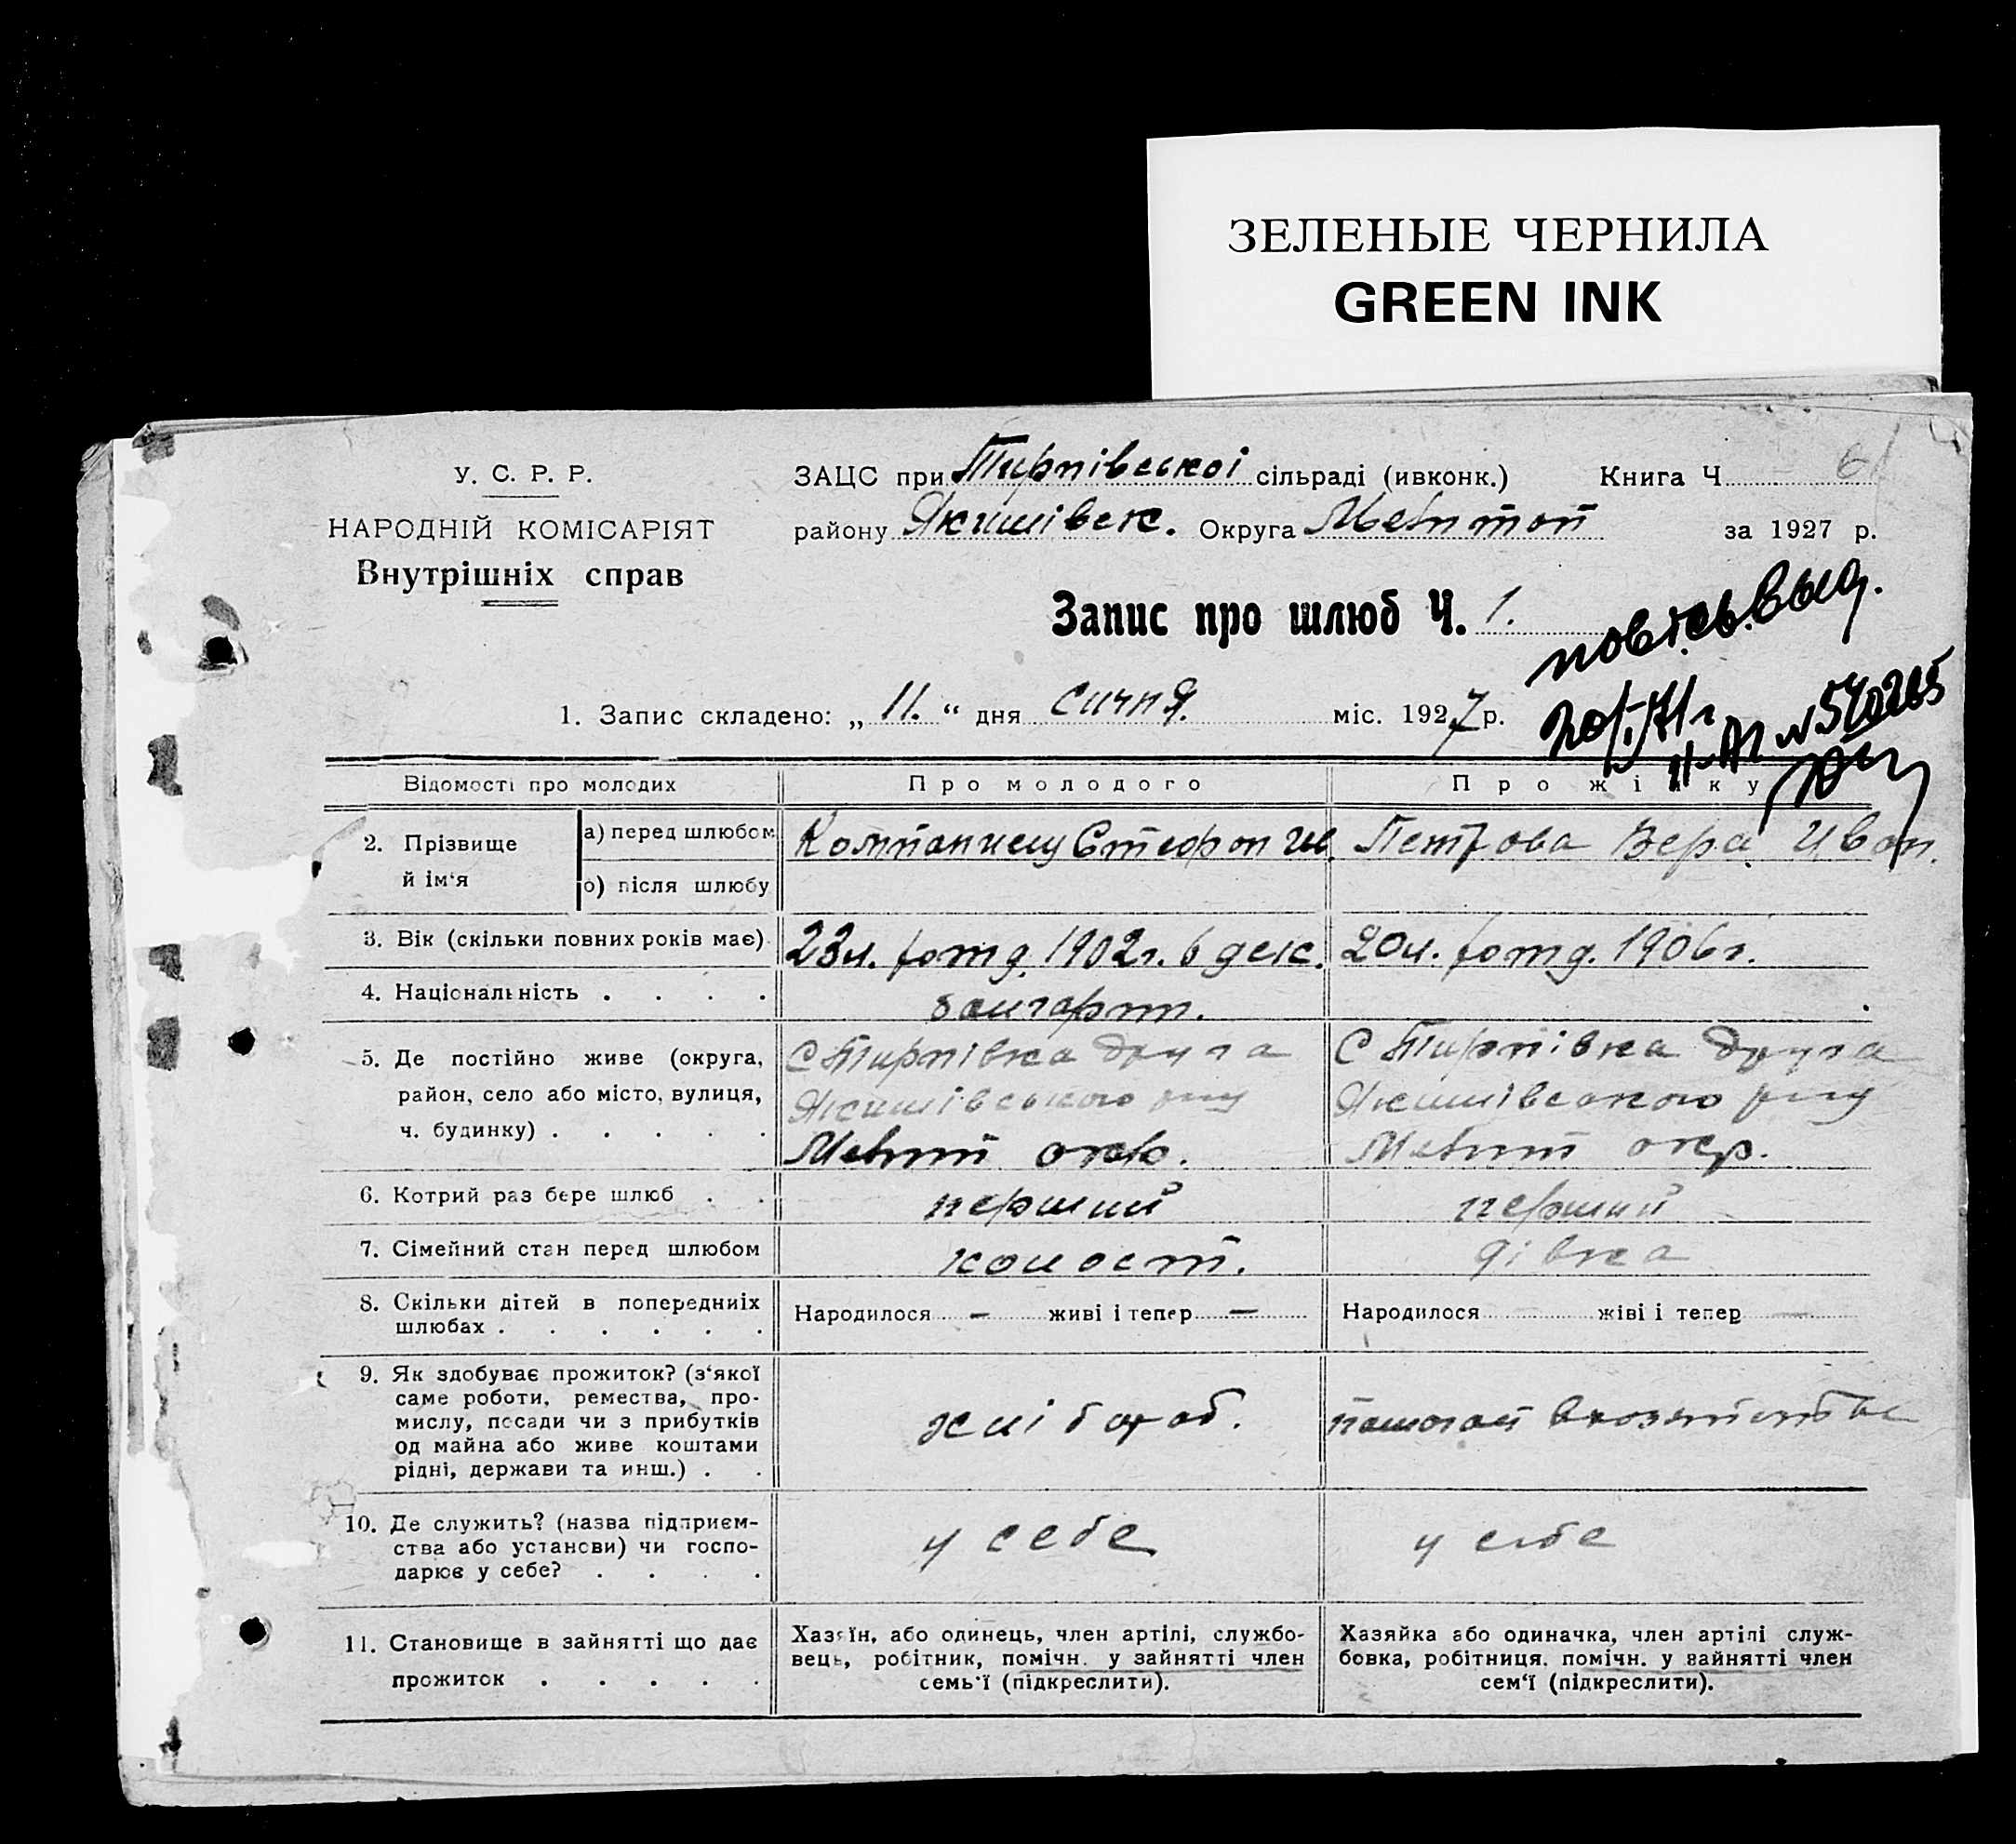 ЗЕЛЕНЫЕ ЧЕРНИЛА
GREEN INK
У. С. Р. Р.
НАРОДНІЙ КОМІСАРІЯТ
Внутрішніх справ
ЗАЦС при Тирнівської сільраді (ивконк.) Книга Ч 6
району Якимівск. Округа Меліттоп за 1927 р.
Запис про шлюб Ч. 1.
повт. св. выд.
20/I-71г
№ 540265
1. Запис складено: „ 11. “ дня сичня. міс. 1927 р.
Відомості про молодих Про молодого Про жінку
2. Прізвище й ім‘я
а) перед шлюбом Компаниец Стефон Ив. Петрова Вера Иван.
б) після шлюбу
3. Вік (скільки повних років має) 23л. 1902г. 6 дек. 20л. 1906г.
4. Національність . . . . болгарт.
5. Де постійно живе (округа, С Тирнівка друга С Тирнівка друга
район, село або місто, вулиця, Якимівського р-ну Якимівського р-ну
ч. будинку) . . . . . Меліт окр. Меліт окр.
6. Котрий раз бере шлюб . . перший перший
7. Сімейний стан перед шлюбом холост. дівка
8. Скільки дітей в попередниіх Народилося — живі і тепер — Народилося — жіві і тепер —
шлюбах . . . . . .
9. Як здобуває прожиток? (з‘якої
саме роботи, ремества, про-
мислу, посади чи з прибутків хлібороб. помогает в хозяйстве
од майна або живе коштами
рідні, держави та инш.) . .
10. Де служить? (назва підприєм-
ства або установи) чи госпо- у себе у себе
дарює у себе? . . . .
11. Становище в зайнятті що дає
прожиток . . . . .
Хазяїн, або одинець, член артілі, службо-
вець, робітник, помічн. у зайнятті член
семь‘ї (підкреслити).
Хазяйка або одиначка, член артілі служ-
бовка, робітниця. помічн. у зайнятті член
сем‘ї (підкреслити).